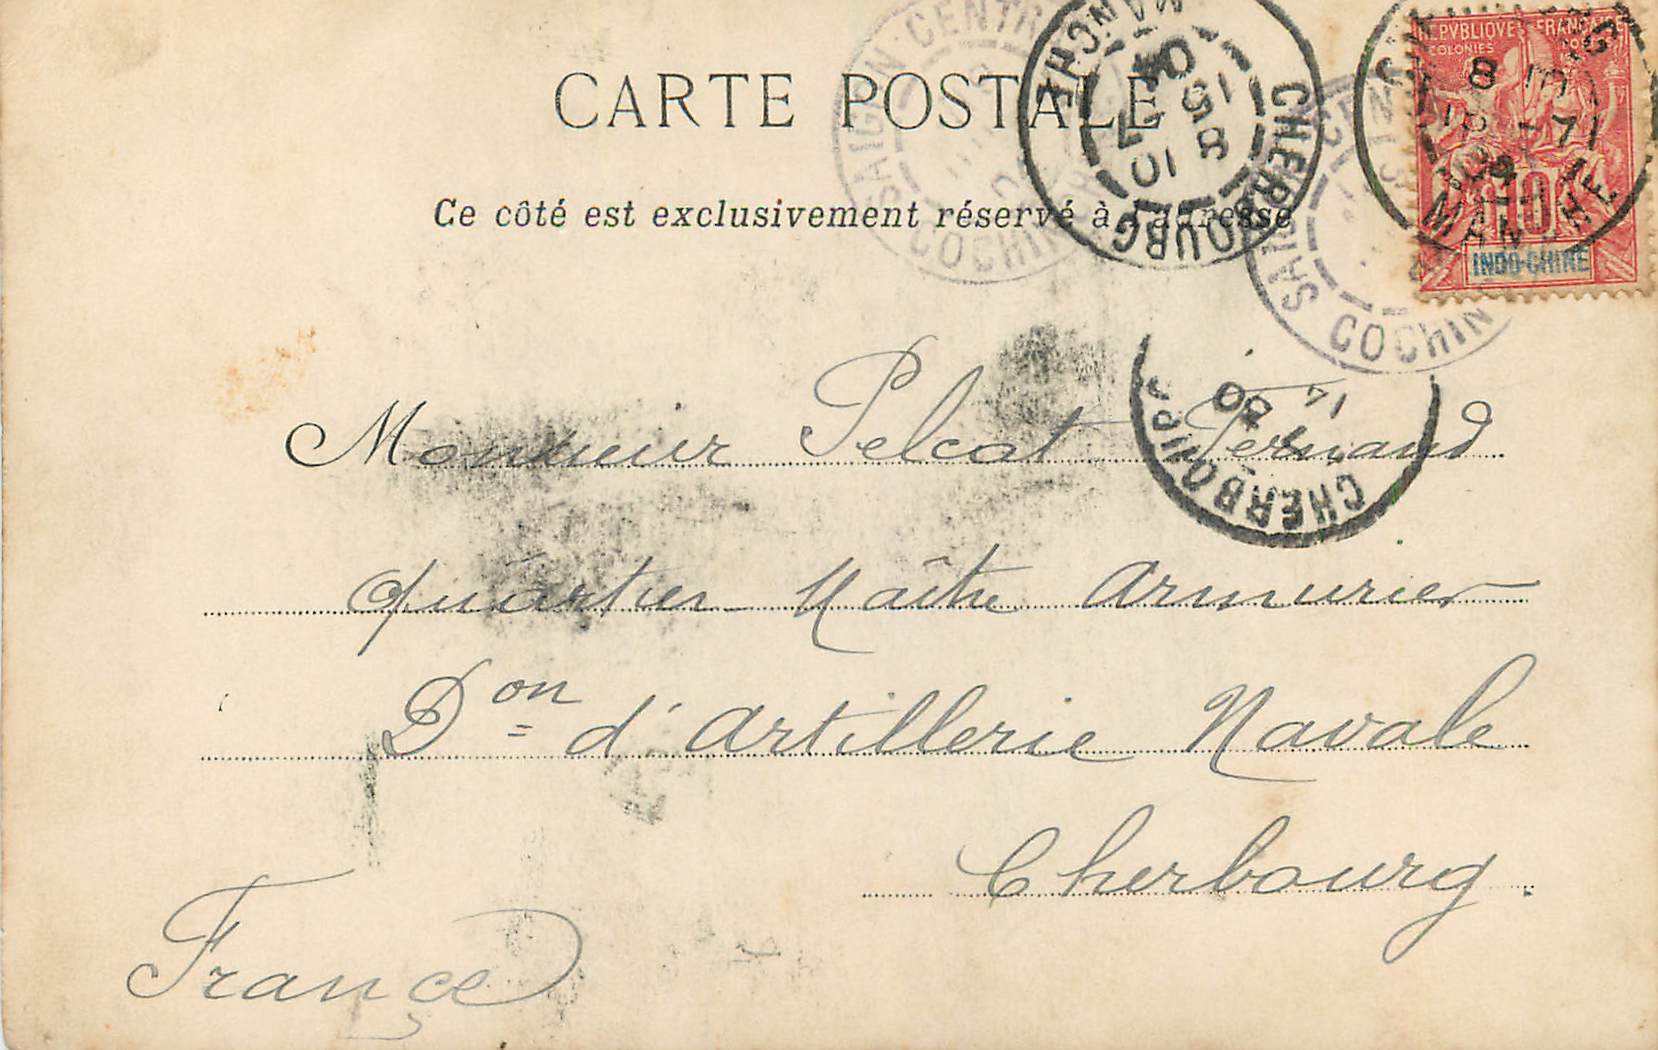 CARTE POSTALE
Ce côté est exclusivement réservé à l'adresse
SAIGON-CENTRAL
COCHINCHINE
CHERBOURG
MANCHE
8 10
15 -7
04
REPVBLIQVE FRANÇAISE
COLONIES POSTES
10
INDO-CHINE
MANCHE
SAIGON
COCHIN
CHERBOURG
Monsieur Pelcat Fernand
Quartier Maître Armurier
Don d'Artillerie Navale
Cherbourg.
France